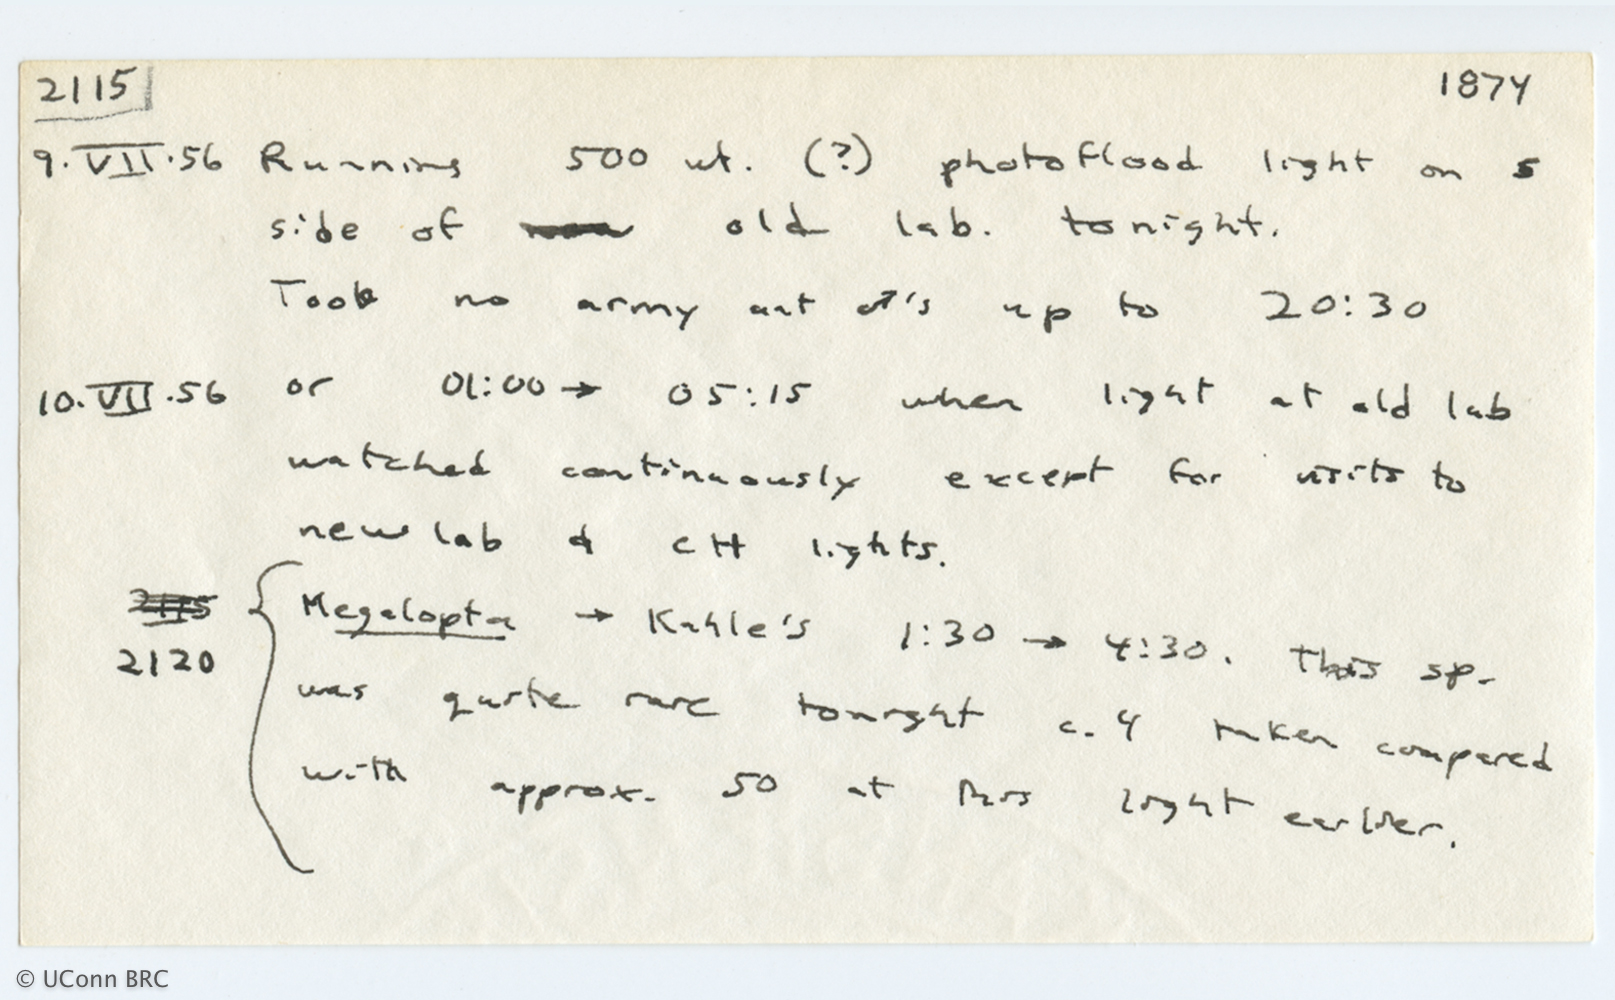 2115 1874
9.VII.56 Running 500 wt. (?) photoflood light on S
side of old lab. tonight.
Took no army ant ♂'s up to 20:30
10.VII.56 or 01:00 → 05:15 when light at old lab
watched continuously except for visits to
new lab & CH lights.
2115 Megalopta → Kahle's 1:30 → 4:30. This sp.
2120 was quite rare tonight c. 4 taken compared
with approx. 50 at this light earlier.
© UConn BRC